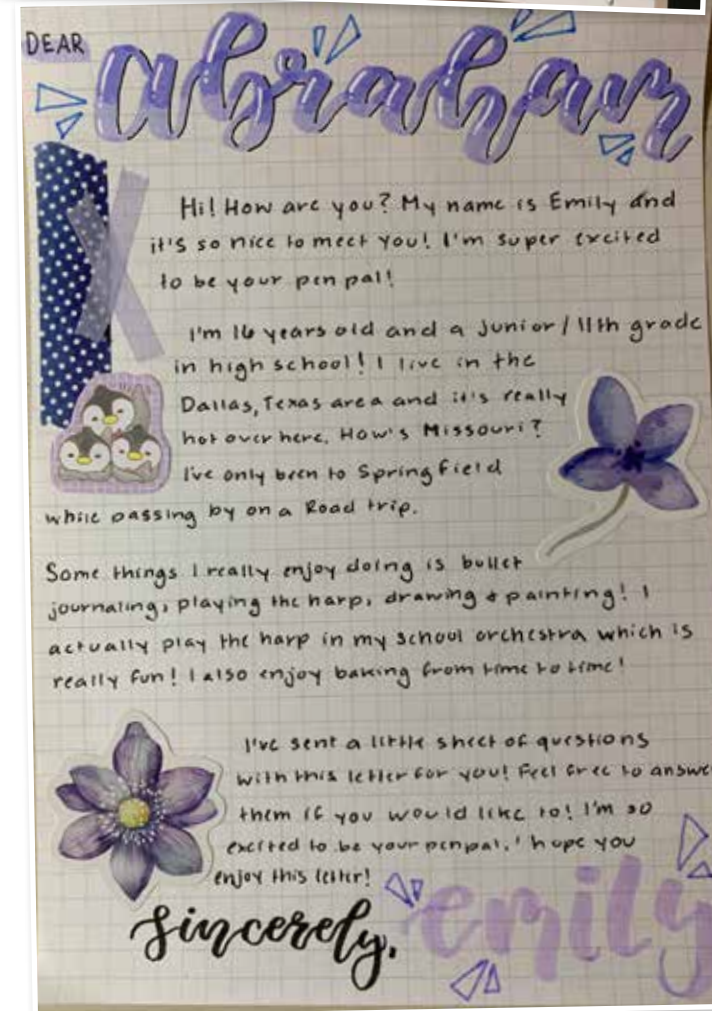 DEAR
abraham
Hi! How are you? My name is Emily and
it's so nice to meet you! I'm super excited
to be your pen pal!
I'm 16 years old and a junior/11th grade
in high school! I live in the
Dallas, Texas area and it's really
hot over here. How's Missouri?
I've only been to Springfield
while passing by on a Road trip.
Some things I really enjoy doing is bullet
journaling, playing the harp, drawing & painting! I
actually play the harp in my school orchestra which is
really fun! I also enjoy baking from time to time!
I've sent a little sheet of questions
with this letter for you! Feel free to answe
them if you would like to! I'm so
excited to be your penpal. I hope you
enjoy this letter!
sincerely,
emily